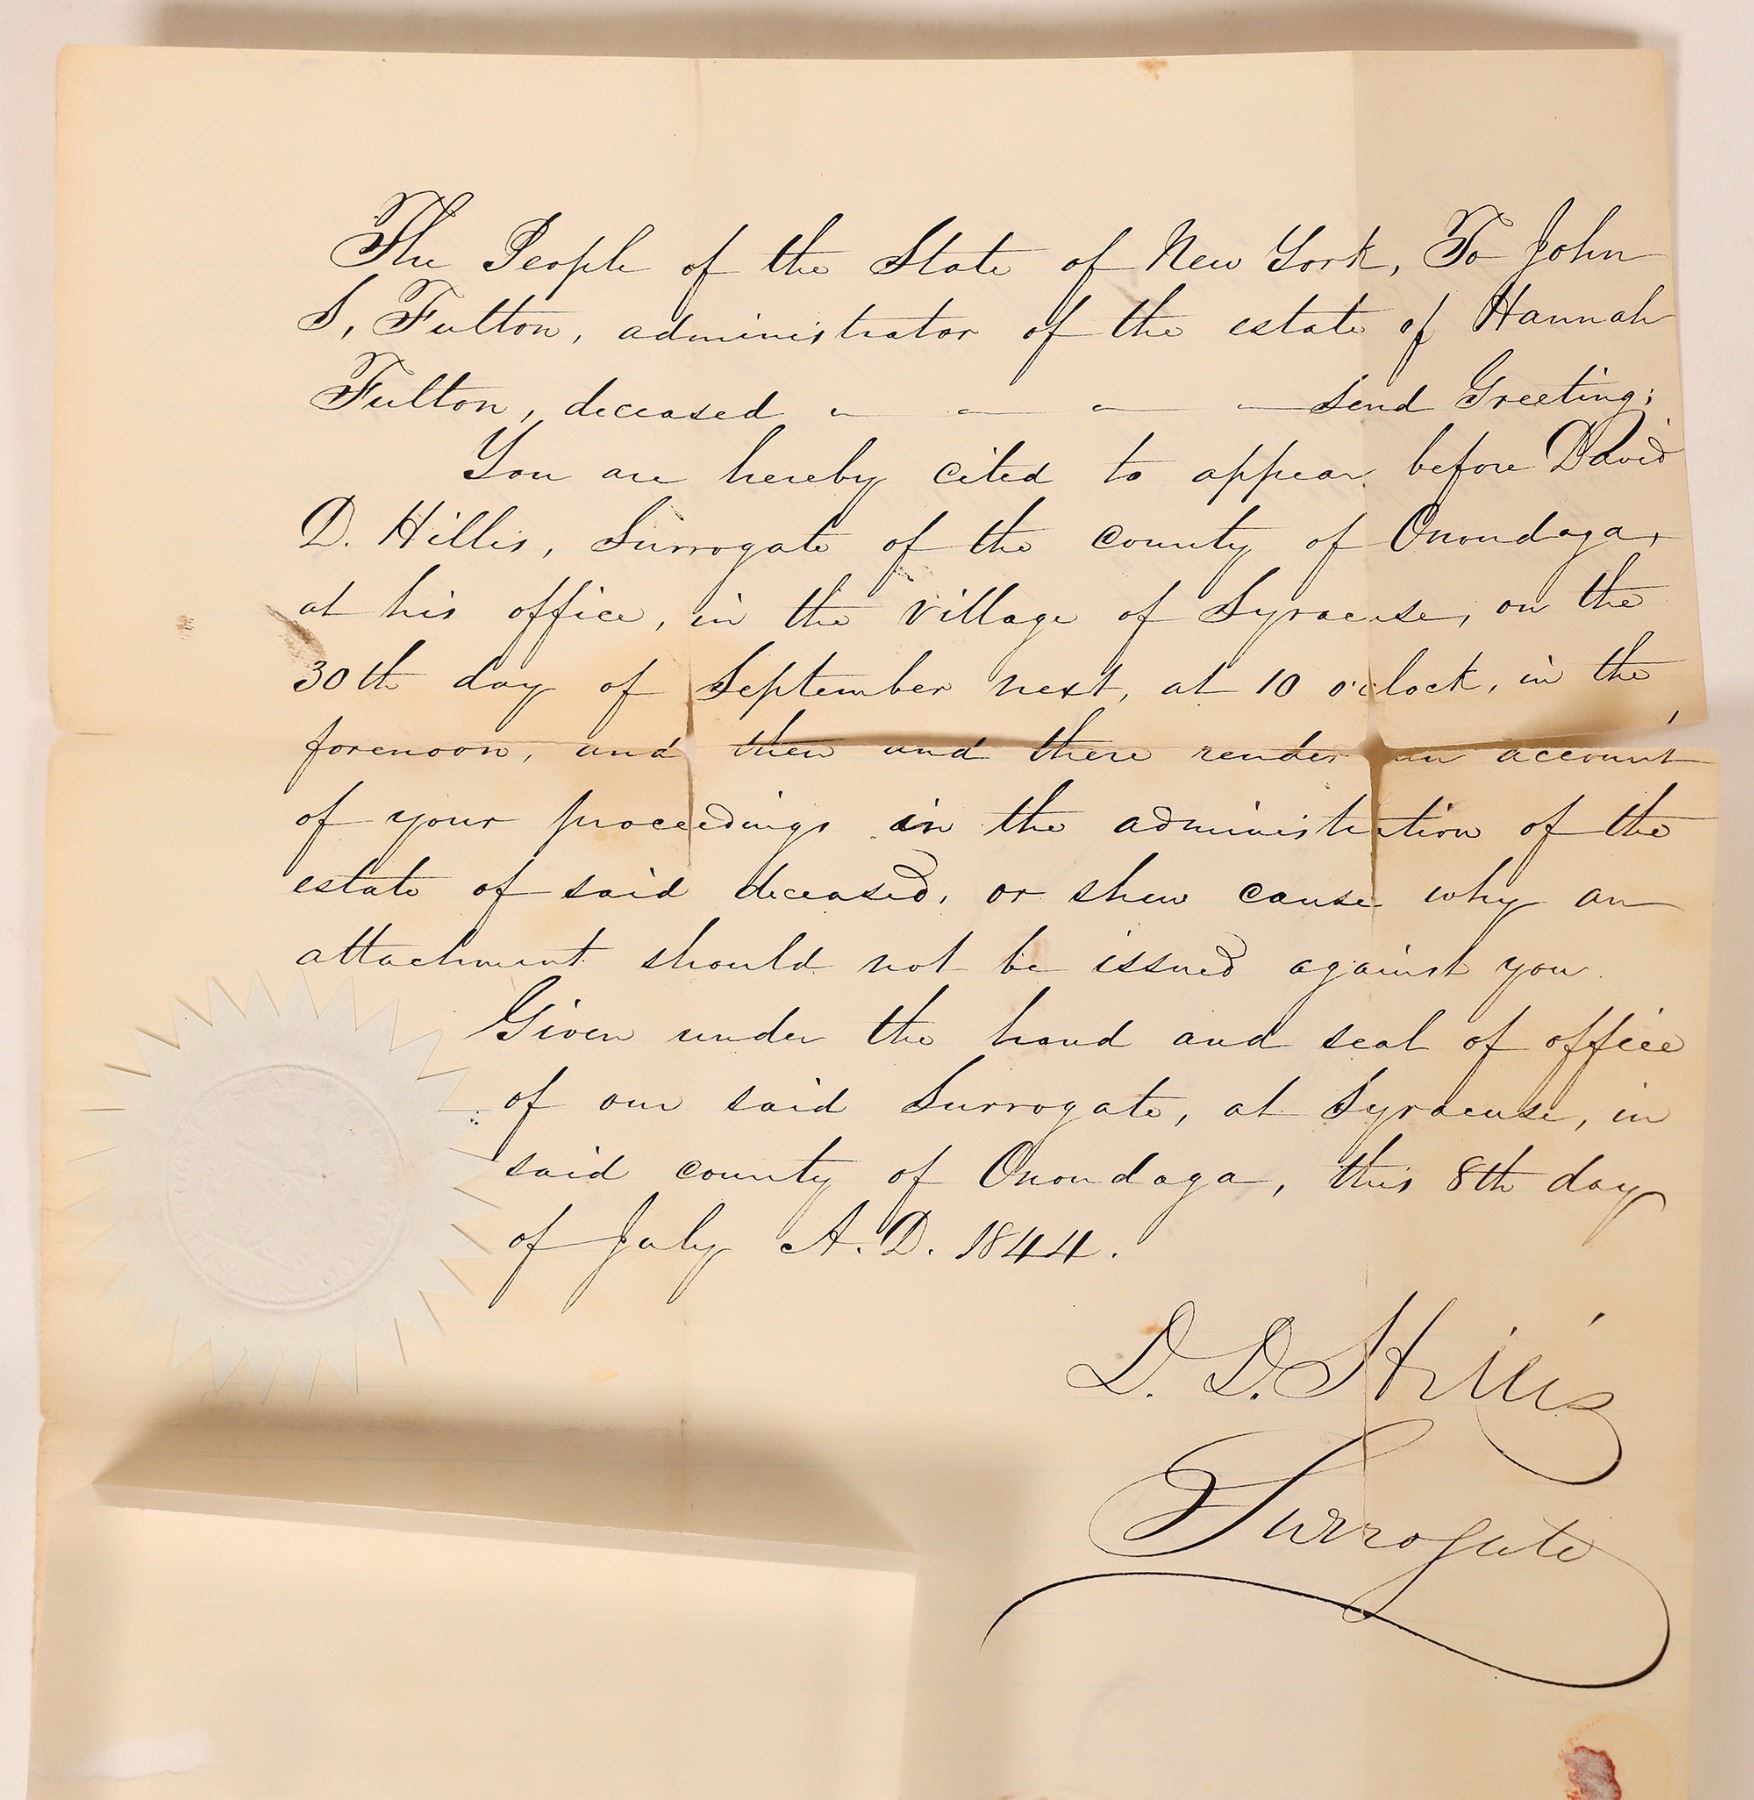 The People of the State of New York, To John
S, Fulton, administrator of the estate of Hannah
Fulton, deceased - - - - send Greeting;
You are hereby cited to appear before David
D. Hillis, Surrogate of the county of Onondaga,
at his office, in the village of Syracuse, on the
30th day of September next, at 10 o'clock, in the
forenoon, and then and there render an account
of your proceedings in the administration of the
estate of said deceased, or shew cause why an
attachment should not be issued against you.
Given under the hand and seal of office
of our said Surrogate, at Syracuse, in
said county of Onondaga, this 8th day
of July A.D. 1844.
D. D. Hillis
Surrogate